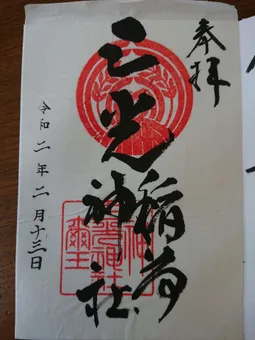 奉拝
三光稲荷神社
令和二年二月十三日